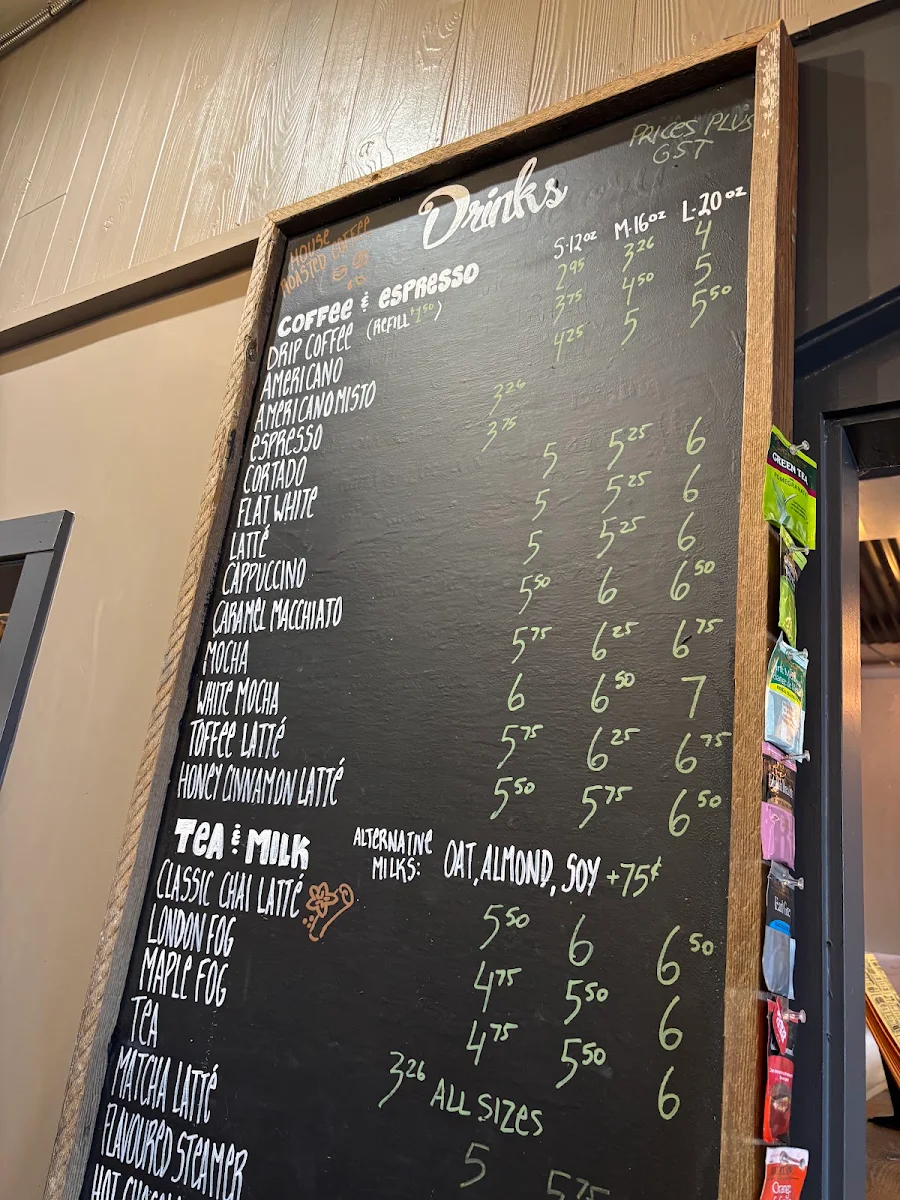 PRICES PLUS
GST
Drinks
HOUSE
ROASTED COFFEE
S·12oz M·16oz L·20oz
COFFEE & ESPRESSO
DRIP COFFEE (REFILL $1.50) 2.95 3.26 4
AMERICANO 3.75 4.50 5
AMERICANO MISTO 4.25 5 5.50
ESPRESSO 3.26
CORTADO 3.75
FLAT WHITE 5 5.25 6
LATTÉ 5 5.25 6
CAPPUCCINO 5 5.25 6
CARAMEL MACCHIATO 5.50 6 6.50
MOCHA 5.75 6.25 6.75
WHITE MOCHA 6 6.50 7
TOFFEE LATTÉ 5.75 6.25 6.75
HONEY CINNAMON LATTÉ 5.50 5.75 6.50
TEA & MILK
ALTERNATIVE
MILKS: OAT, ALMOND, SOY +75¢
CLASSIC CHAI LATTÉ 5.50 6 6.50
LONDON FOG 4.75 5.50 6
MAPLE FOG 4.75 5.50 6
TEA 3.26 ALL SIZES
MATCHA LATTÉ 5 5.75
FLAVOURED STEAMER
GREEN TEA
Orange